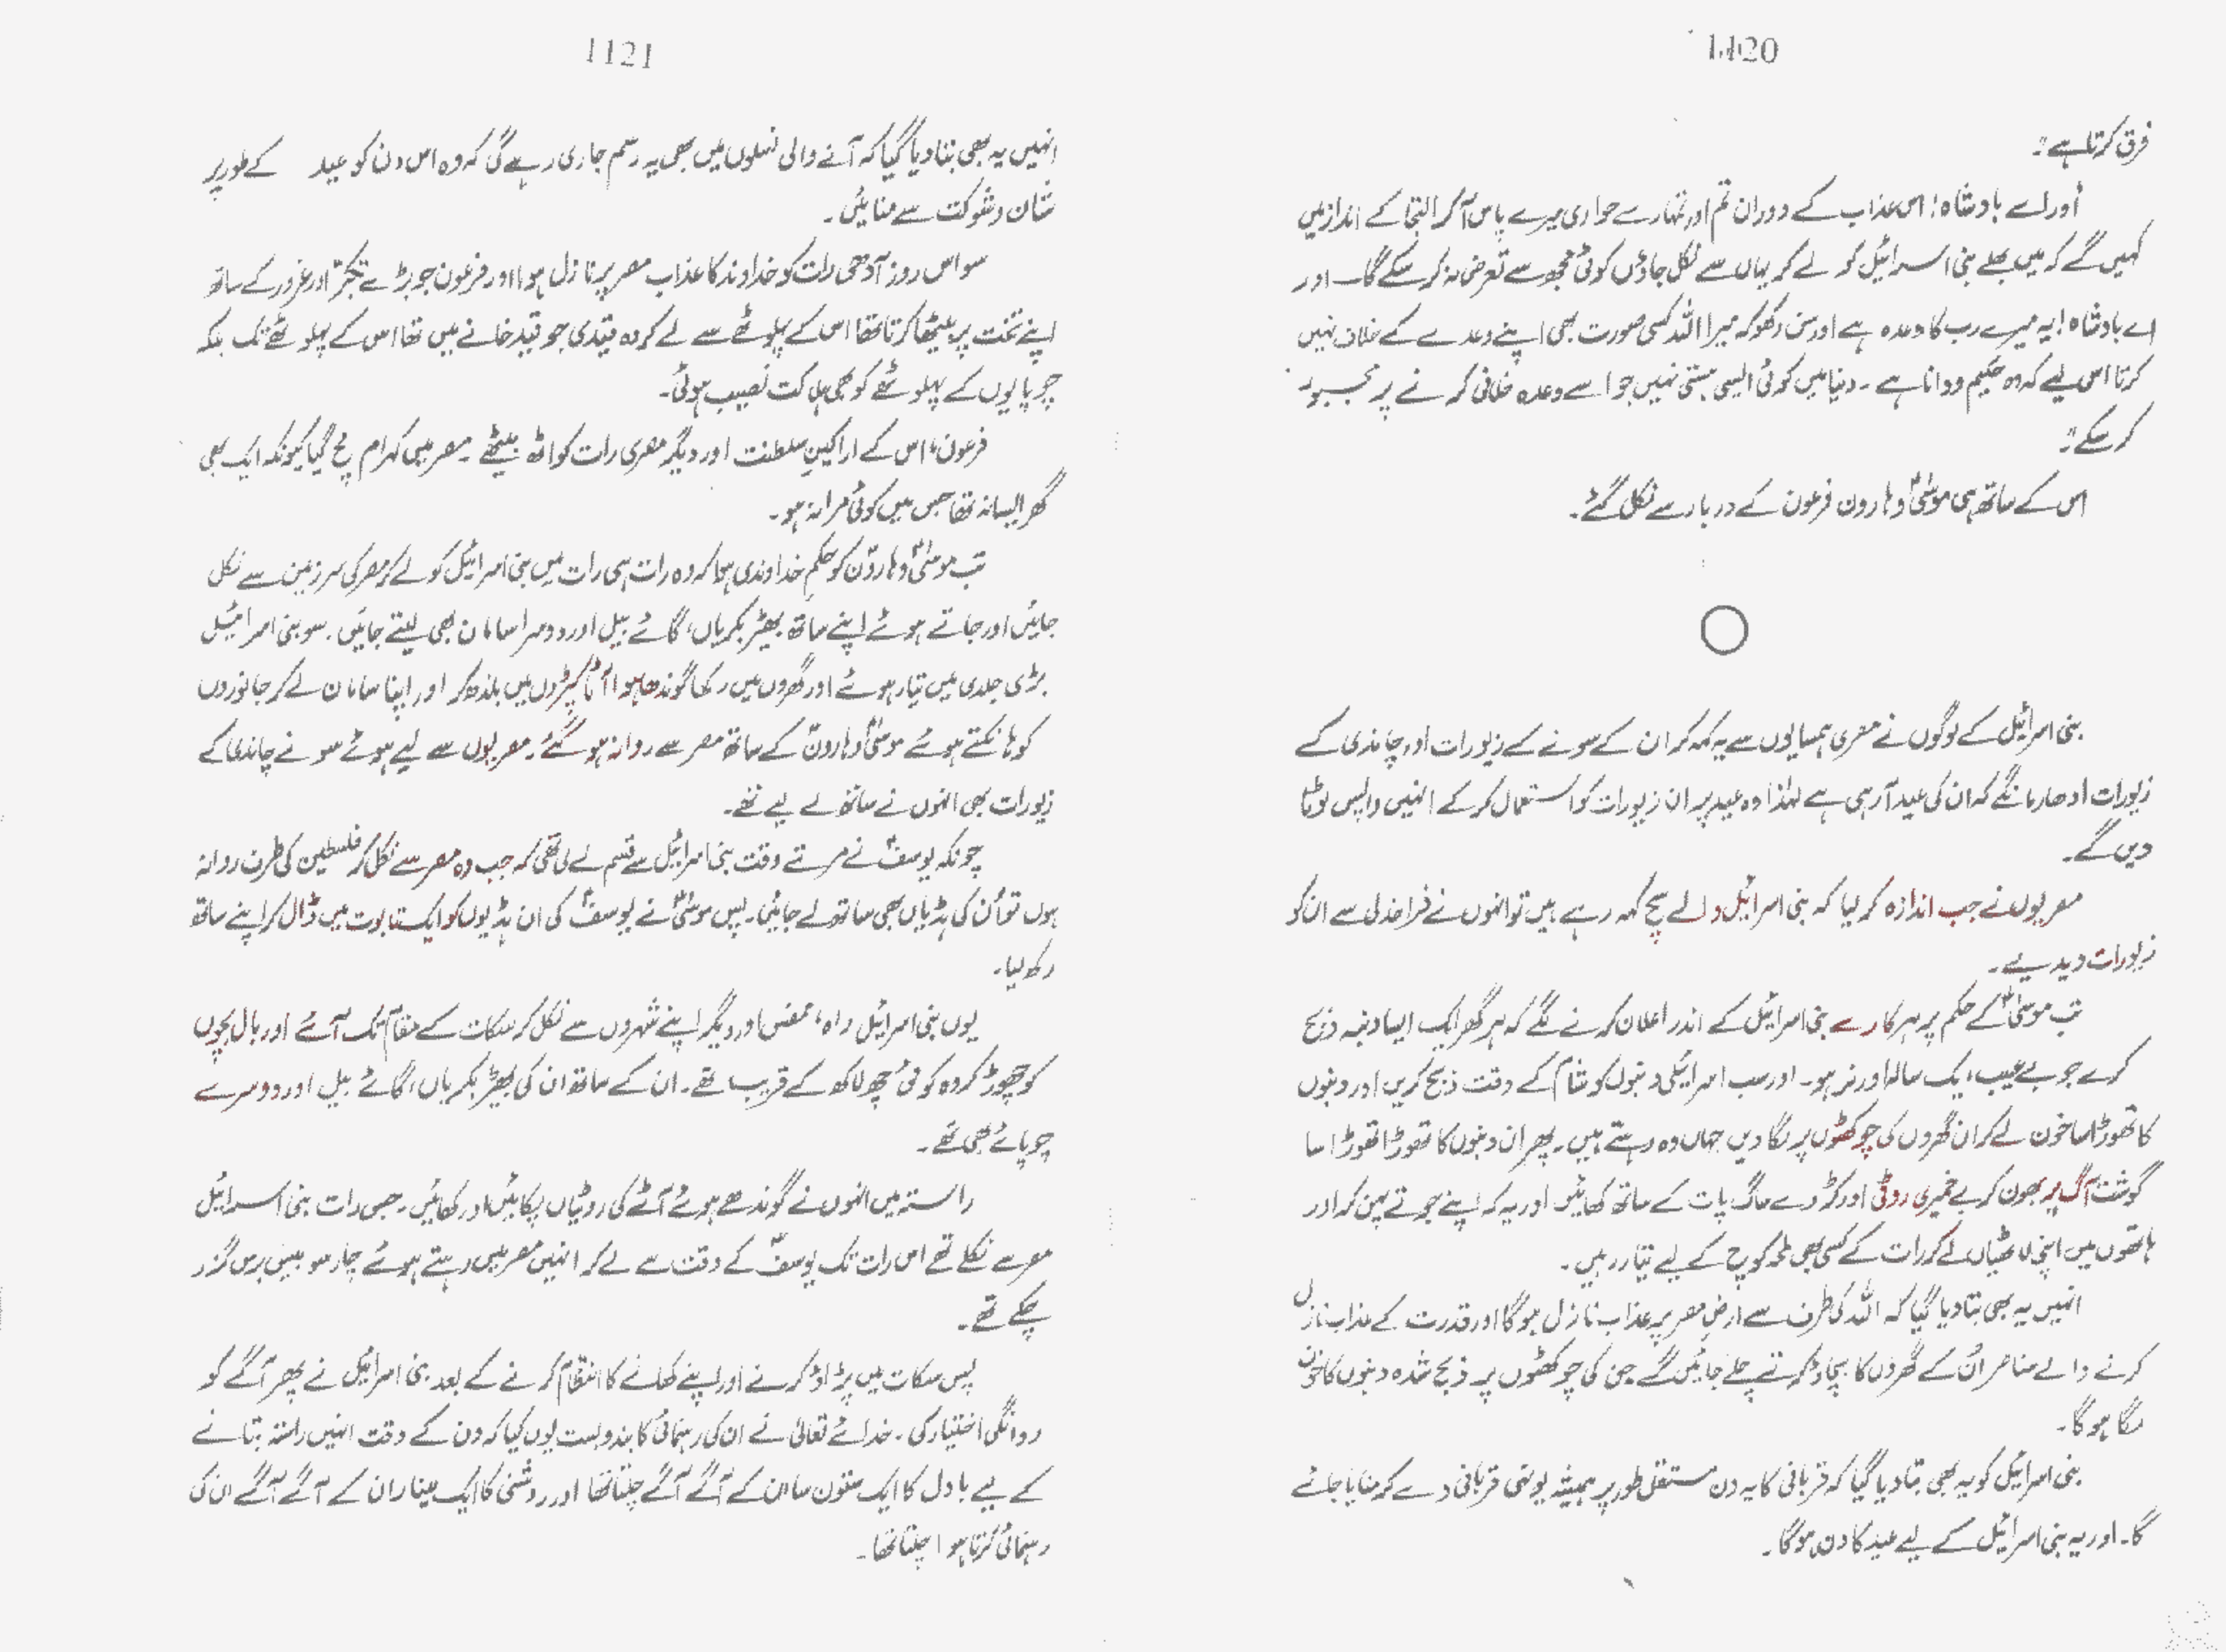 1120
فرق کرتا ہے۔"
"اور اے بادشاہ! اس عذاب کے دوران تم اور تمہارے حواری میرے پاس آ کر التجا کے انداز میں
کہیں گے کہ میں بھلے بنی اسرائیل کو لے کر یہاں سے نکل جاؤں کوئی مجھ سے تعرض نہ کر سکے گا۔ اور
اے بادشاہ! یہ میرے رب کا وعدہ ہے اور سن رکھو کہ میرا اللہ کسی صورت بھی اپنے وعدے کے خلاف نہیں
کرتا اس لیے کہ وہ حکیم و دانا ہے۔ دنیا میں کوئی ایسی ہستی نہیں جو اسے وعدہ خلافی کرنے پر مجبور
کر سکے۔"
اس کے ساتھ ہی موسیٰؑ و ہارون فرعون کے دربار سے نکل گئے۔
بنی اسرائیل کے لوگوں نے مصری ہمسایوں سے یہ کہہ کر ان کے سونے کے زیورات اور چاندی کے
زیورات ادھار مانگے کہ ان کی عید آ رہی ہے لہٰذا وہ عید پر ان زیورات کو استعمال کر کے انہیں واپس لوٹا
دیں گے۔
مصریوں نے جب اندازہ کر لیا کہ بنی اسرائیل والے سچ کہہ رہے ہیں تو انہوں نے فراخدلی سے ان کو
زیورات دیدیے۔
تب موسیٰؑ کے حکم پر ہرکارے بنی اسرائیل کے اندر اعلان کرنے لگے کہ ہر گھر ایک ایسا دنبہ ذبح
کرے جو بے عیب، یک سالہ اور نر ہو۔ اور سب اسرائیلی دنبوں کو شام کے وقت ذبح کریں اور دنبوں
کا تھوڑا سا خون لے کر ان گھروں کی چوکھٹوں پر لگا دیں جہاں وہ رہتے ہیں۔ پھر ان دنبوں کا تھوڑا تھوڑا سا
گوشت آگ پر بھون کر بے خمیری روٹی اور کڑوے ساگ پات کے ساتھ کھائیں اور یہ کہ اپنے جوتے پہن کر اور
ہاتھوں میں اپنی لاٹھیاں لے کر رات کے کسی بھی لمحہ کوچ کے لیے تیار رہیں۔
انہیں یہ بھی بتا دیا گیا کہ اللہ کی طرف سے ارضِ مصر پر عذاب نازل ہوگا اور قدرت کے عذاب نازل
کرنے والے عناصر ان کے گھروں کا بچاؤ کرتے چلے جائیں گے جن کی چوکھٹوں پر ذبح شدہ دنبوں کا خون
لگا ہوگا۔
بنی اسرائیل کو یہ بھی بتا دیا گیا کہ قربانی کا یہ دن مستقل طور پر ہمیشہ یونہی قربانی دے کر منایا جائے
گا۔ اور یہ بنی اسرائیل کے لیے عید کا دن ہوگا۔
1121
انہیں یہ بھی بتا دیا گیا کہ آنے والی نسلوں میں بھی یہ رسم جاری رہے گی کہ وہ اس دن کو عید کے طور پر
شان و شوکت سے منائیں۔
سو اس روز آدھی رات کو خداوند کا عذاب مصر پر نازل ہوا اور فرعون جو بڑے تکبر اور غرور کے ساتھ
اپنے تخت پر بیٹھا کرتا تھا اس کے پہلوٹھے سے لے کر وہ قیدی جو قید خانے میں تھا اس کے پہلوٹھے تک بلکہ
چوپایوں کے پہلوٹھے کو بھی ہلاکت نصیب ہوئی۔
فرعون، اس کے اراکینِ سلطنت اور دیگر مصری رات کو اٹھ بیٹھے۔ مصر میں کہرام مچ گیا کیونکہ ایک بھی
گھر ایسا نہ تھا جس میں کوئی مرا نہ ہو۔
تب موسیٰؑ و ہارونؑ کو حکمِ خداوندی ہوا کہ وہ رات ہی رات میں بنی اسرائیل کو لے کر مصر کی سرزمین سے نکل
جائیں اور جاتے ہوئے اپنے ساتھ بھیڑ بکریاں، گائے بیل اور دوسرا سامان بھی لیتے جائیں۔ سو بنی اسرائیل
بڑی جلدی میں تیار ہوئے اور گھروں میں رکھا گوندھا ہوا آٹا کپڑوں میں باندھ کر اور اپنا سامان لے کر جانوروں
کو ہانکتے ہوئے موسیٰؑ و ہارونؑ کے ساتھ مصر سے روانہ ہو گئے۔ مصریوں سے لیے ہوئے سونے چاندی کے
زیورات بھی انہوں نے ساتھ لے لیے تھے۔
چونکہ یوسفؑ نے مرتے وقت بنی اسرائیل سے قسم لے لی تھی کہ جب وہ مصر سے نکل کر فلسطین کی طرف روانہ
ہوں تو ان کی ہڈیاں بھی ساتھ لے جائیں۔ پس موسیٰؑ نے یوسفؑ کی ان ہڈیوں کو ایک تابوت میں ڈال کر اپنے ساتھ
رکھ لیا۔
یوں بنی اسرائیل راہ، ممفس اور دیگر اپنے شہروں سے نکل کر سکات کے مقام تک آئے اور بال بچوں
کو چھوڑ کر وہ کوئی چھ لاکھ کے قریب تھے۔ ان کے ساتھ ان کی بھیڑ بکریاں، گائے بیل اور دوسرے
چوپائے بھی تھے۔
راستہ میں انہوں نے گوندھے ہوئے آٹے کی روٹیاں پکائیں اور کھائیں۔ جس رات بنی اسرائیل
مصر سے نکلے تھے اس رات تک یوسفؑ کے وقت سے لے کر انہیں مصر میں رہتے ہوئے چار سو بیس برس گزر
چکے تھے۔
پس سکات میں پڑاؤ کرنے اور اپنے کھانے کا انتظام کرنے کے بعد بنی اسرائیل نے پھر آگے کو
روانگی اختیار کی۔ خدائے تعالیٰ نے ان کی رہنمائی کا بندوبست یوں کیا کہ دن کے وقت انہیں راستہ بتانے
کے لیے بادل کا ایک ستون سا ان کے آگے آگے چلتا تھا اور روشنی کا ایک مینار ان کے آگے آگے ان کی
رہنمائی کرتا ہوا چلتا تھا۔